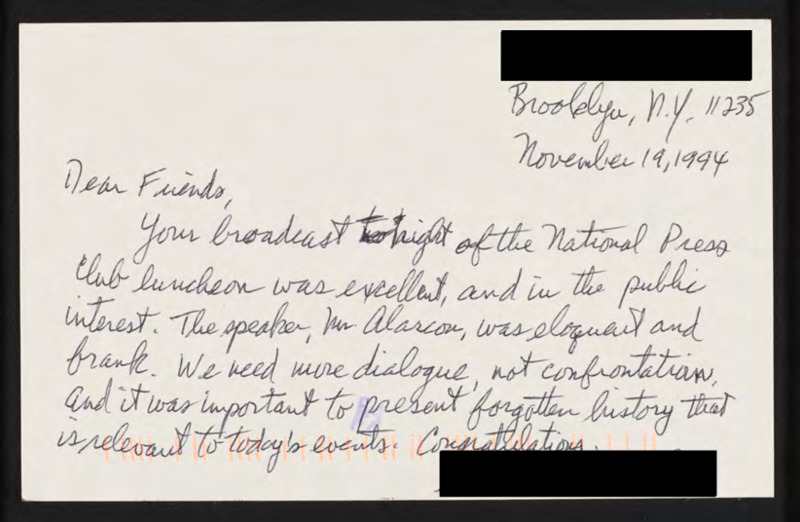 Brooklyn, N.Y. 11235
November 19, 1994
Dear Friends,
Your broadcast tonight of the National Press
Club luncheon was excellent, and in the public
interest. The speaker, Mr. Alarcon, was eloquent and
frank. We need more dialogue, not confrontation,
and it was important to present forgotten history that
is relevant to today's events. Congratulations.